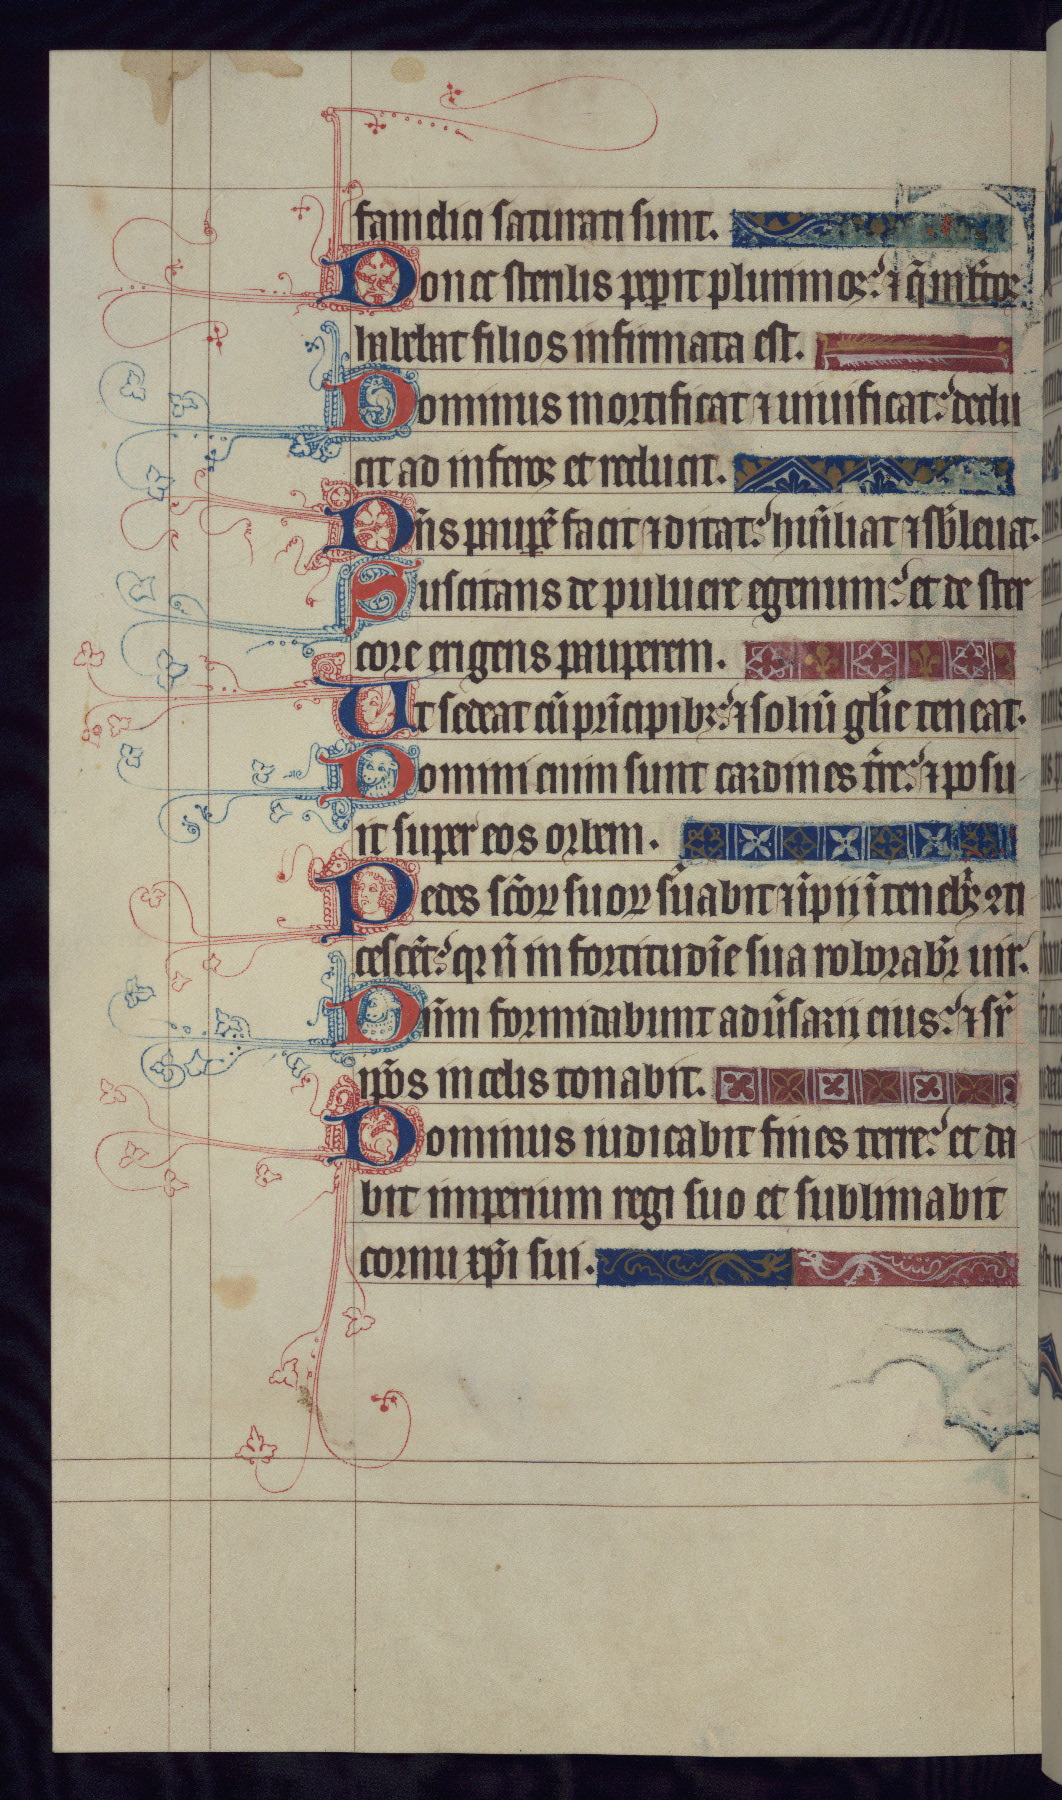 famelici saturati sunt.
Donec sterilis peperit plurimos: ⁊ q̄ mltos
habebat filios infirmata est.
Dominus mortificat ⁊ uiuificat: dedu
cit ad inferos et reducit.
Dn̄s paupē facit ⁊ ditat: hum̄liat ⁊ sb̄leuat.
Suscitans de puluere egenum: et de ster
core erigens pauperem.
Ut sedeat cū prīncipibꝫ: ⁊ soliū gl̄ie teneat.
Domini enim sunt cardines tr̄e: ⁊ posu
it super eos orbem.
Pedes sc̄oꝝ suoꝝ s̄uabit ⁊ īpij ī teneb̄s ꝯti
cescēt: qr n̄ in fortitudīe sua roborabr̄ uir.
Dn̄m formidabunt adūsarij eius: ⁊ sr̄
ip̄os in celis tonabit.
Dominus iudicabit fines terre: et da
bit imperium regi suo et sublimabit
cornu xp̄i sui.